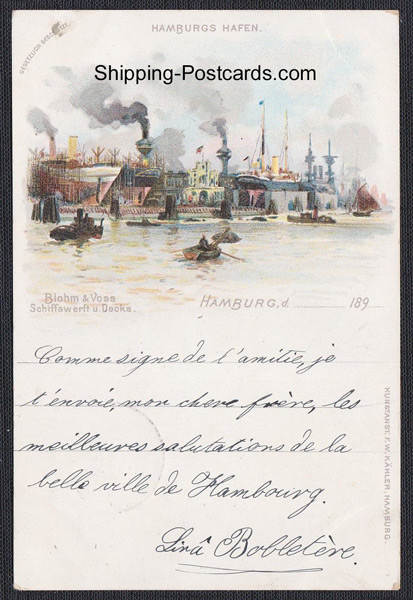 HAMBURGS HAFEN.
GESETZLICH GESCHÜTZT.
Shipping-Postcards.com
Blohm & Voss
Schiffswerft u. Docks.
HAMBURG, d. 189
Comme signe de l'amitié, je
t'envoie, mon chere frère, les
meilleures salutations de la
belle ville de Hambourg.
Lina Bobletère.
KUNSTANST. F. W. KÄHLER, HAMBURG.